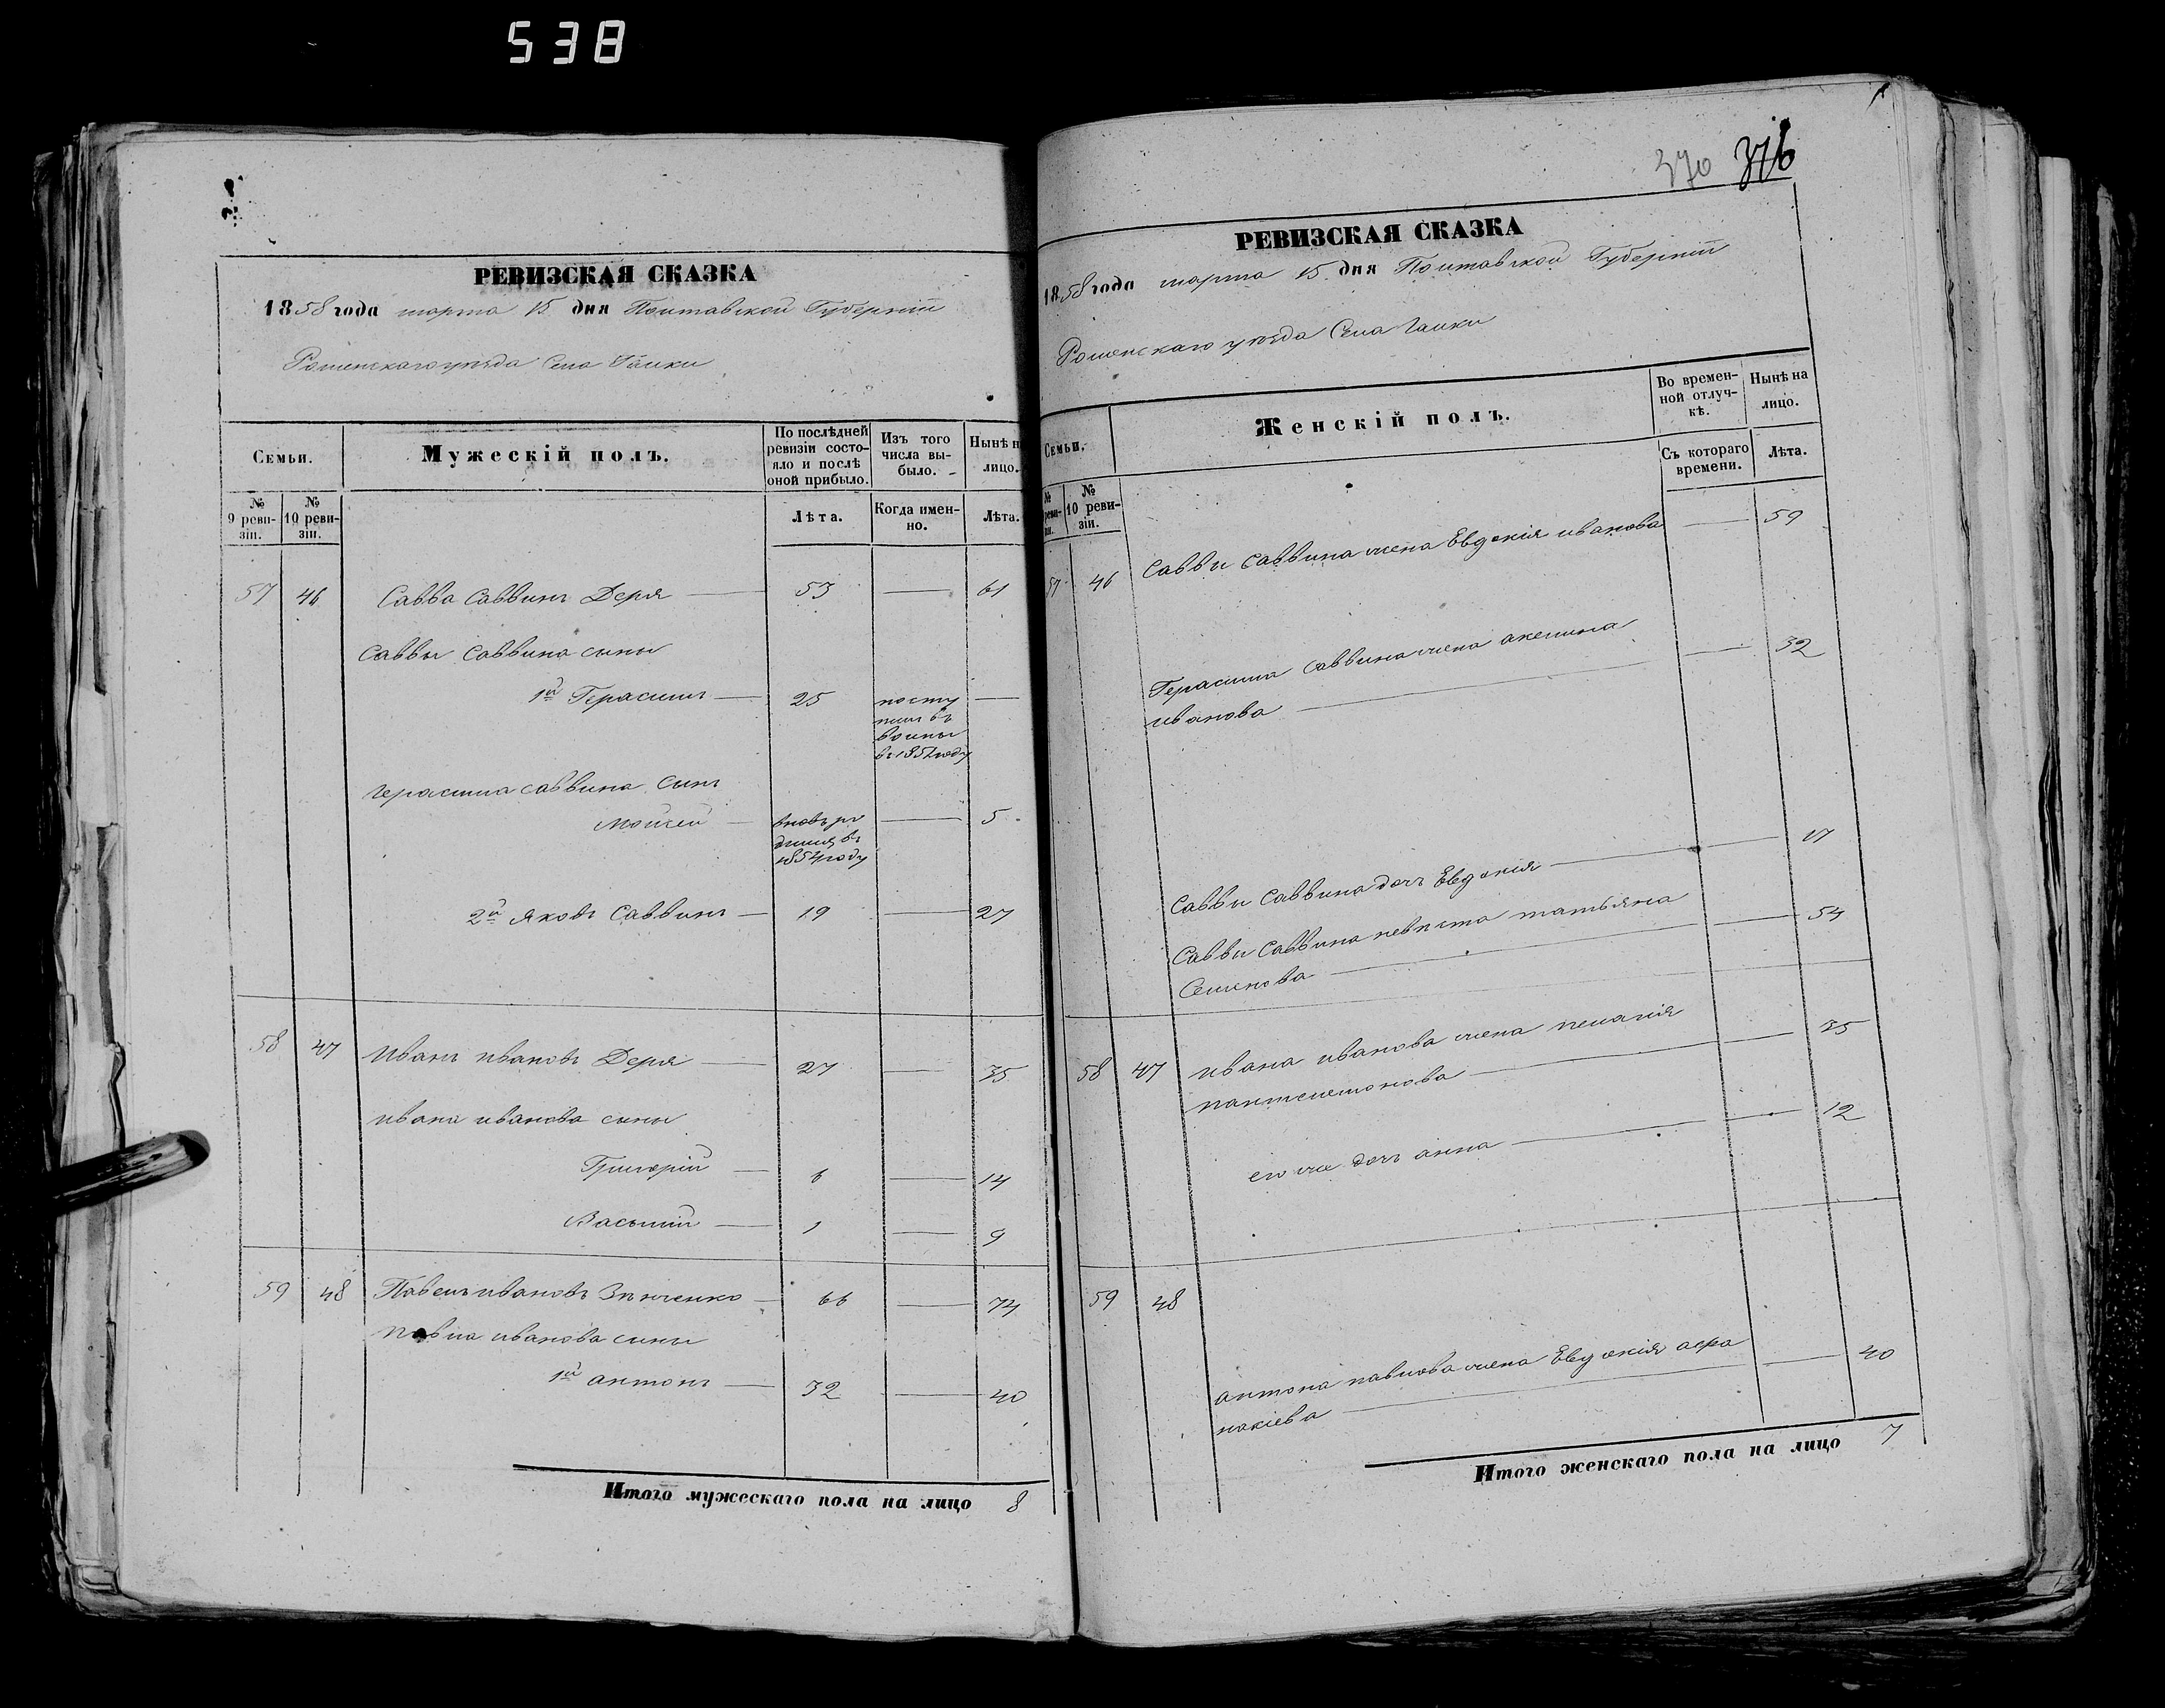 538
РЕВИЗСКАЯ СКАЗКА
1858 года марта 15 дня Полтавской Губерніи
Роменскаго уѣзда Села Галки
Семьи.
Мужескій полъ.
По послѣдней ревизіи состояло и послѣ оной прибыло.
Изъ того числа выбыло.
Нынѣ на лицо.
№ 9 ревизіи.
№ 10 ревизіи.
Лѣта.
Когда именно.
Лѣта.
57 46 Савва Саввинъ Деря 53 61
Саввы Саввина сыны
1й Герасимъ 25 поступил въ воины в 1852 году
Герасима Саввина сынъ
Мойсей вновь родился въ 1854 году 5
2й Яковъ Саввинъ 19 27
58 47 Иванъ Ивановъ Деря 27 35
Ивана Иванова сыны
Григорій 6 14
Василій 1 9
59 48 Павелъ Ивановъ 66 74
Павла Иванова сыны
1й Антонъ 32 40
Итого мужескаго пола на лицо 8
370 376
РЕВИЗСКАЯ СКАЗКА
1858 года марта 15 дня Полтавской Губерніи
Роменскаго уѣзда Села Галки
Семьи.
Женскій полъ.
Во временной отлучкѣ.
Нынѣ на лицо.
№ 10 ревизіи.
Съ котораго времени.
Лѣта.
57 46 Саввы Саввина жена Евдокія Иванова 59
Герасима Саввина жена Акелина 32
Иванова
Саввы Саввина дочь Евдокія 17
Саввы Саввина невѣста Татьяна 54
Семенова
58 47 Ивана Иванова жена Пелагія 35
Пантелемонова
его же дочь Анна 12
59 48
Антона Павлова жена Евдокія 40
Итого женскаго пола на лицо 7